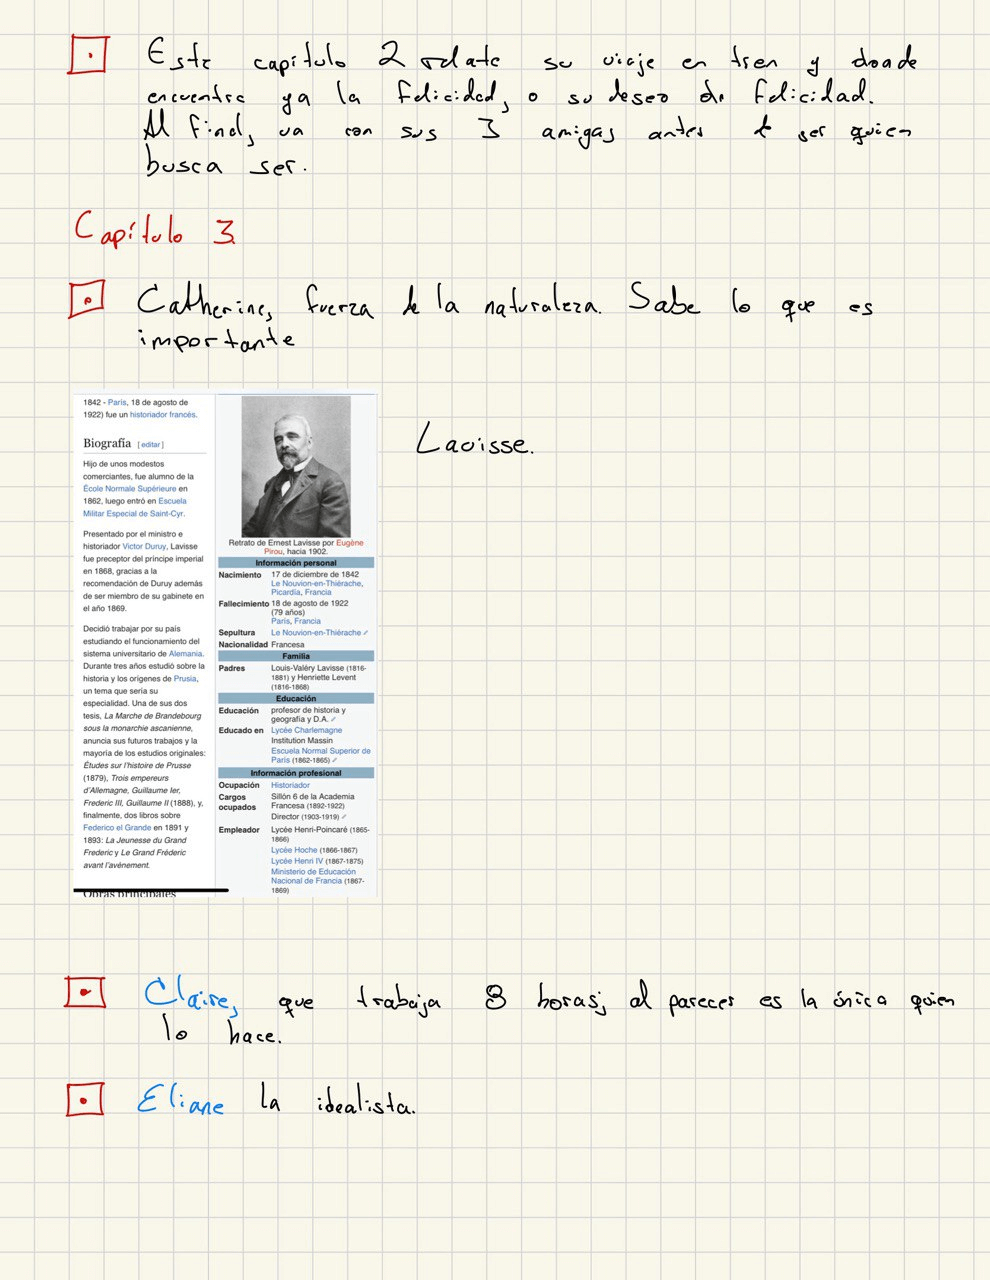 Este capítulo 2 relata su viaje en tren y donde
encuentra ya la felicidad, o su deseo de felicidad.
Al final, va con sus 3 amigas antes de ser quien
busca ser.
Capítulo 3
Catherine, fuerza de la naturaleza. Sabe lo que es
importante
1842 - París, 18 de agosto de
1922) fue un historiador francés.
Biografía [ editar ]
Hijo de unos modestos
comerciantes, fue alumno de la
École Normale Supérieure en
1862, luego entró en Escuela
Militar Especial de Saint-Cyr.
Presentado por el ministro e
historiador Victor Duruy, Lavisse
fue preceptor del príncipe imperial
en 1868, gracias a la
recomendación de Duruy además
de ser miembro de su gabinete en
el año 1869.
Decidió trabajar por su país
estudiando el funcionamiento del
sistema universitario de Alemania.
Durante tres años estudió sobre la
historia y los orígenes de Prusia,
un tema que sería su
especialidad. Una de sus dos
tesis, La Marche de Brandebourg
sous la monarchie ascanienne,
anuncia sus futuros trabajos y la
mayoría de los estudios originales:
Études sur l'histoire de Prusse
(1879), Trois empereurs
d'Allemagne, Guillaume Ier,
Frederic III, Guillaume II (1888), y,
finalmente, dos libros sobre
Federico el Grande en 1891 y
1893: La Jeunesse du Grand
Frederic y Le Grand Fréderic
avant l'avènement.
Obras principales
Retrato de Ernest Lavisse por Eugène
Pirou, hacia 1902.
Información personal
Nacimiento 17 de diciembre de 1842
Le Nouvion-en-Thiérache,
Picardía, Francia
Fallecimiento 18 de agosto de 1922
(79 años)
París, Francia
Sepultura Le Nouvion-en-Thiérache
Nacionalidad Francesa
Familia
Padres Louis-Valéry Lavisse (1816-
1881) y Henriette Levent
(1816-1868)
Educación
Educación profesor de historia y
geografía y D.A.
Educado en Lycée Charlemagne
Institution Massin
Escuela Normal Superior de
París (1862-1865)
Información profesional
Ocupación Historiador
Cargos ocupados Sillón 6 de la Academia
Francesa (1892-1922)
Director (1903-1919)
Empleador Lycée Henri-Poincaré (1865-
1866)
Lycée Hoche (1866-1867)
Lycée Henri IV (1867-1875)
Ministerio de Educación
Nacional de Francia (1867-
1869)
Lavisse.
Claire, que trabaja 8 horas; al parecer es la única quien
lo hace.
Eliane la idealista.